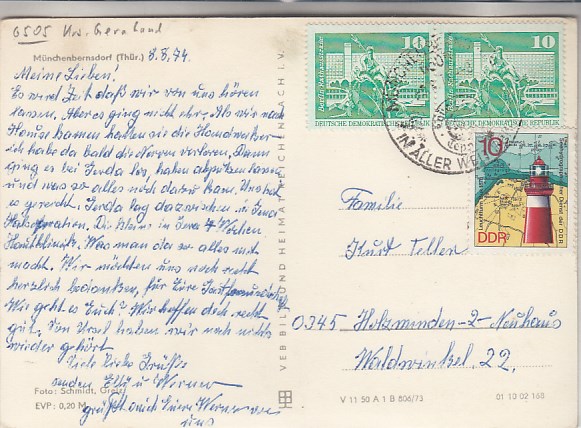 6505
Münchenbernsdorf (Thür.) 8.8.74
Meine Lieben!
Es wird Zeit daß wir von uns hören
lassen. Aber es ging nicht ehr. Als wir nach
Hause kamen hatten wir die Handwerker
ich habe da bald die Nerven verloren. Dann
ging es bei Gerda los,
und was so alles noch dazu kam. Uns hat
es gereicht. Gerda lag dazwischen in Jena
Operation. Die Kleine in Jena 4 Wochen
Hautklinik. Was man da so alles mit
macht. Wir möchten uns noch recht
herzlich bedanken, für Eure
Wie geht es Euch? Wir hoffen doch recht
gut. Von Ursel haben wir noch nichts
wieder gehört
Viele liebe Grüße
senden Elly u. Werner
grüßt auch Euren Werner von
uns
Foto: Schmidt, Greiz
EVP: 0,20 M
VEB BILD UND HEIMAT REICHENBACH I. V.
V 11 50 A 1 B 806/73
01 10 02 168
10
DEUTSCHE DEMOKRATISCHE REPUBLIK
10
DEUTSCHE DEMOKRATISCHE REPUBLIK
IN ALLER WELT
10
DDR
Familie
Kurt Tellen
D345 Holzminden-2-Neuhaus
Waldwinkel 22.